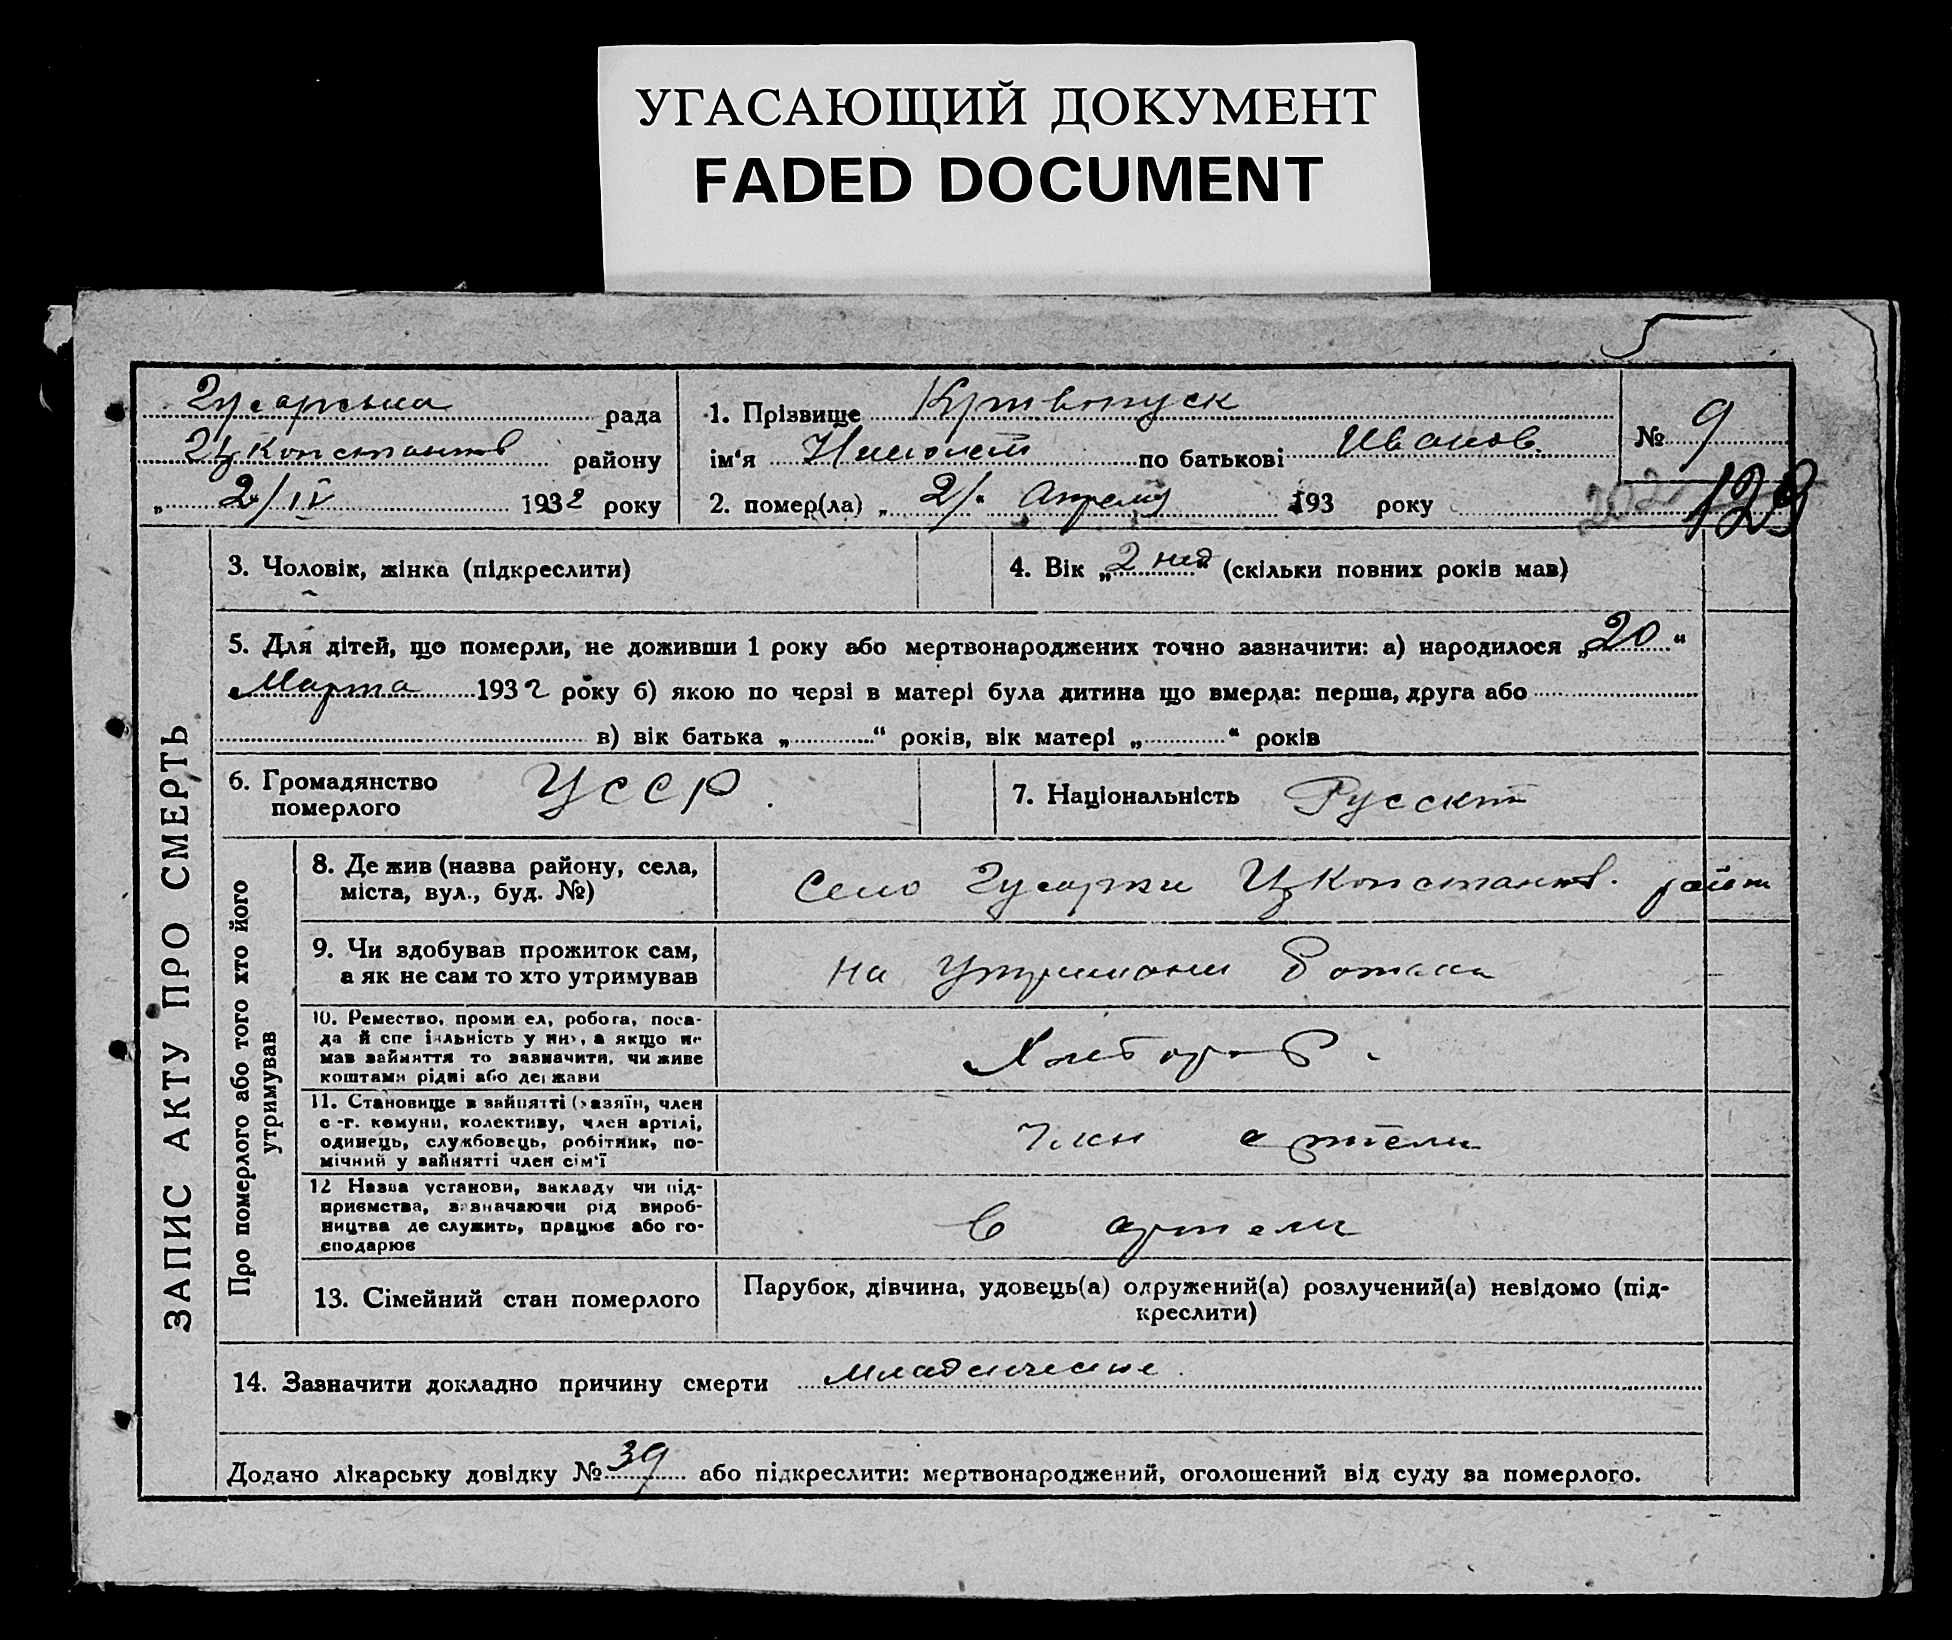 УГАСАЮЩИЙ ДОКУМЕНТ
FADED DOCUMENT
Гусарська рада
Цконстантов району
„ 2/IV 1932 року
1. Прізвище Кривопуск
ім‘я Николай по батькові Иванов.
2. помер(ла) „ 2/" Апреля 193 року
№ 9
202 123
ЗАПИС АКТУ ПРО СМЕРТЬ
3. Чоловік, жінка (підкреслити)
4. Вік „2 нед“ (скільки повних років мав)
5. Для дітей, що померли, не доживши 1 року або мертвонароджених точно зазначити: а) народилося „20“
Марта 1932 року б) якою по черзі в матері була дитина що вмерла: перша, друга або
в) вік батька „ “ років, вік матері „ “ років
6. Громадянство
померлого
УССР.
7. Національність Русский
Про померлого або того хто його
утримував
8. Де жив (назва району, села,
міста, вул., буд. №)
Село Гусарки Цконстантов. район
9. Чи здобував прожиток сам,
а як не сам то хто утримував
на утримани батька
10. Ремество, проми ел, робота, поса-
да й спе іяльність у ни, а якщо не
мав зайняття то зазначити, чи живе
коштами рідні або держави
Хлебороб.
11. Становище в зайнятті (хазяїн, член
с-г. комуни, колективу, член артілі,
одинець, службовець, робітник, по-
мічний у зайнятті член сім‘ї
Член артели
12 Назва установи, закладу чи під-
приємства, зазначаючи рід вироб-
ництва де служить, працює або го-
сподарює
В артели
13. Сімейний стан померлого
Парубок, дівчина, удовець(а) одружений(а) розлучений(а) невідомо (під-
креслити)
14. Зазначити докладно причину смерти младенческие.
Додано лікарську довідку № 39 або підкреслити: мертвонароджений, оголошений від суду за померлого.